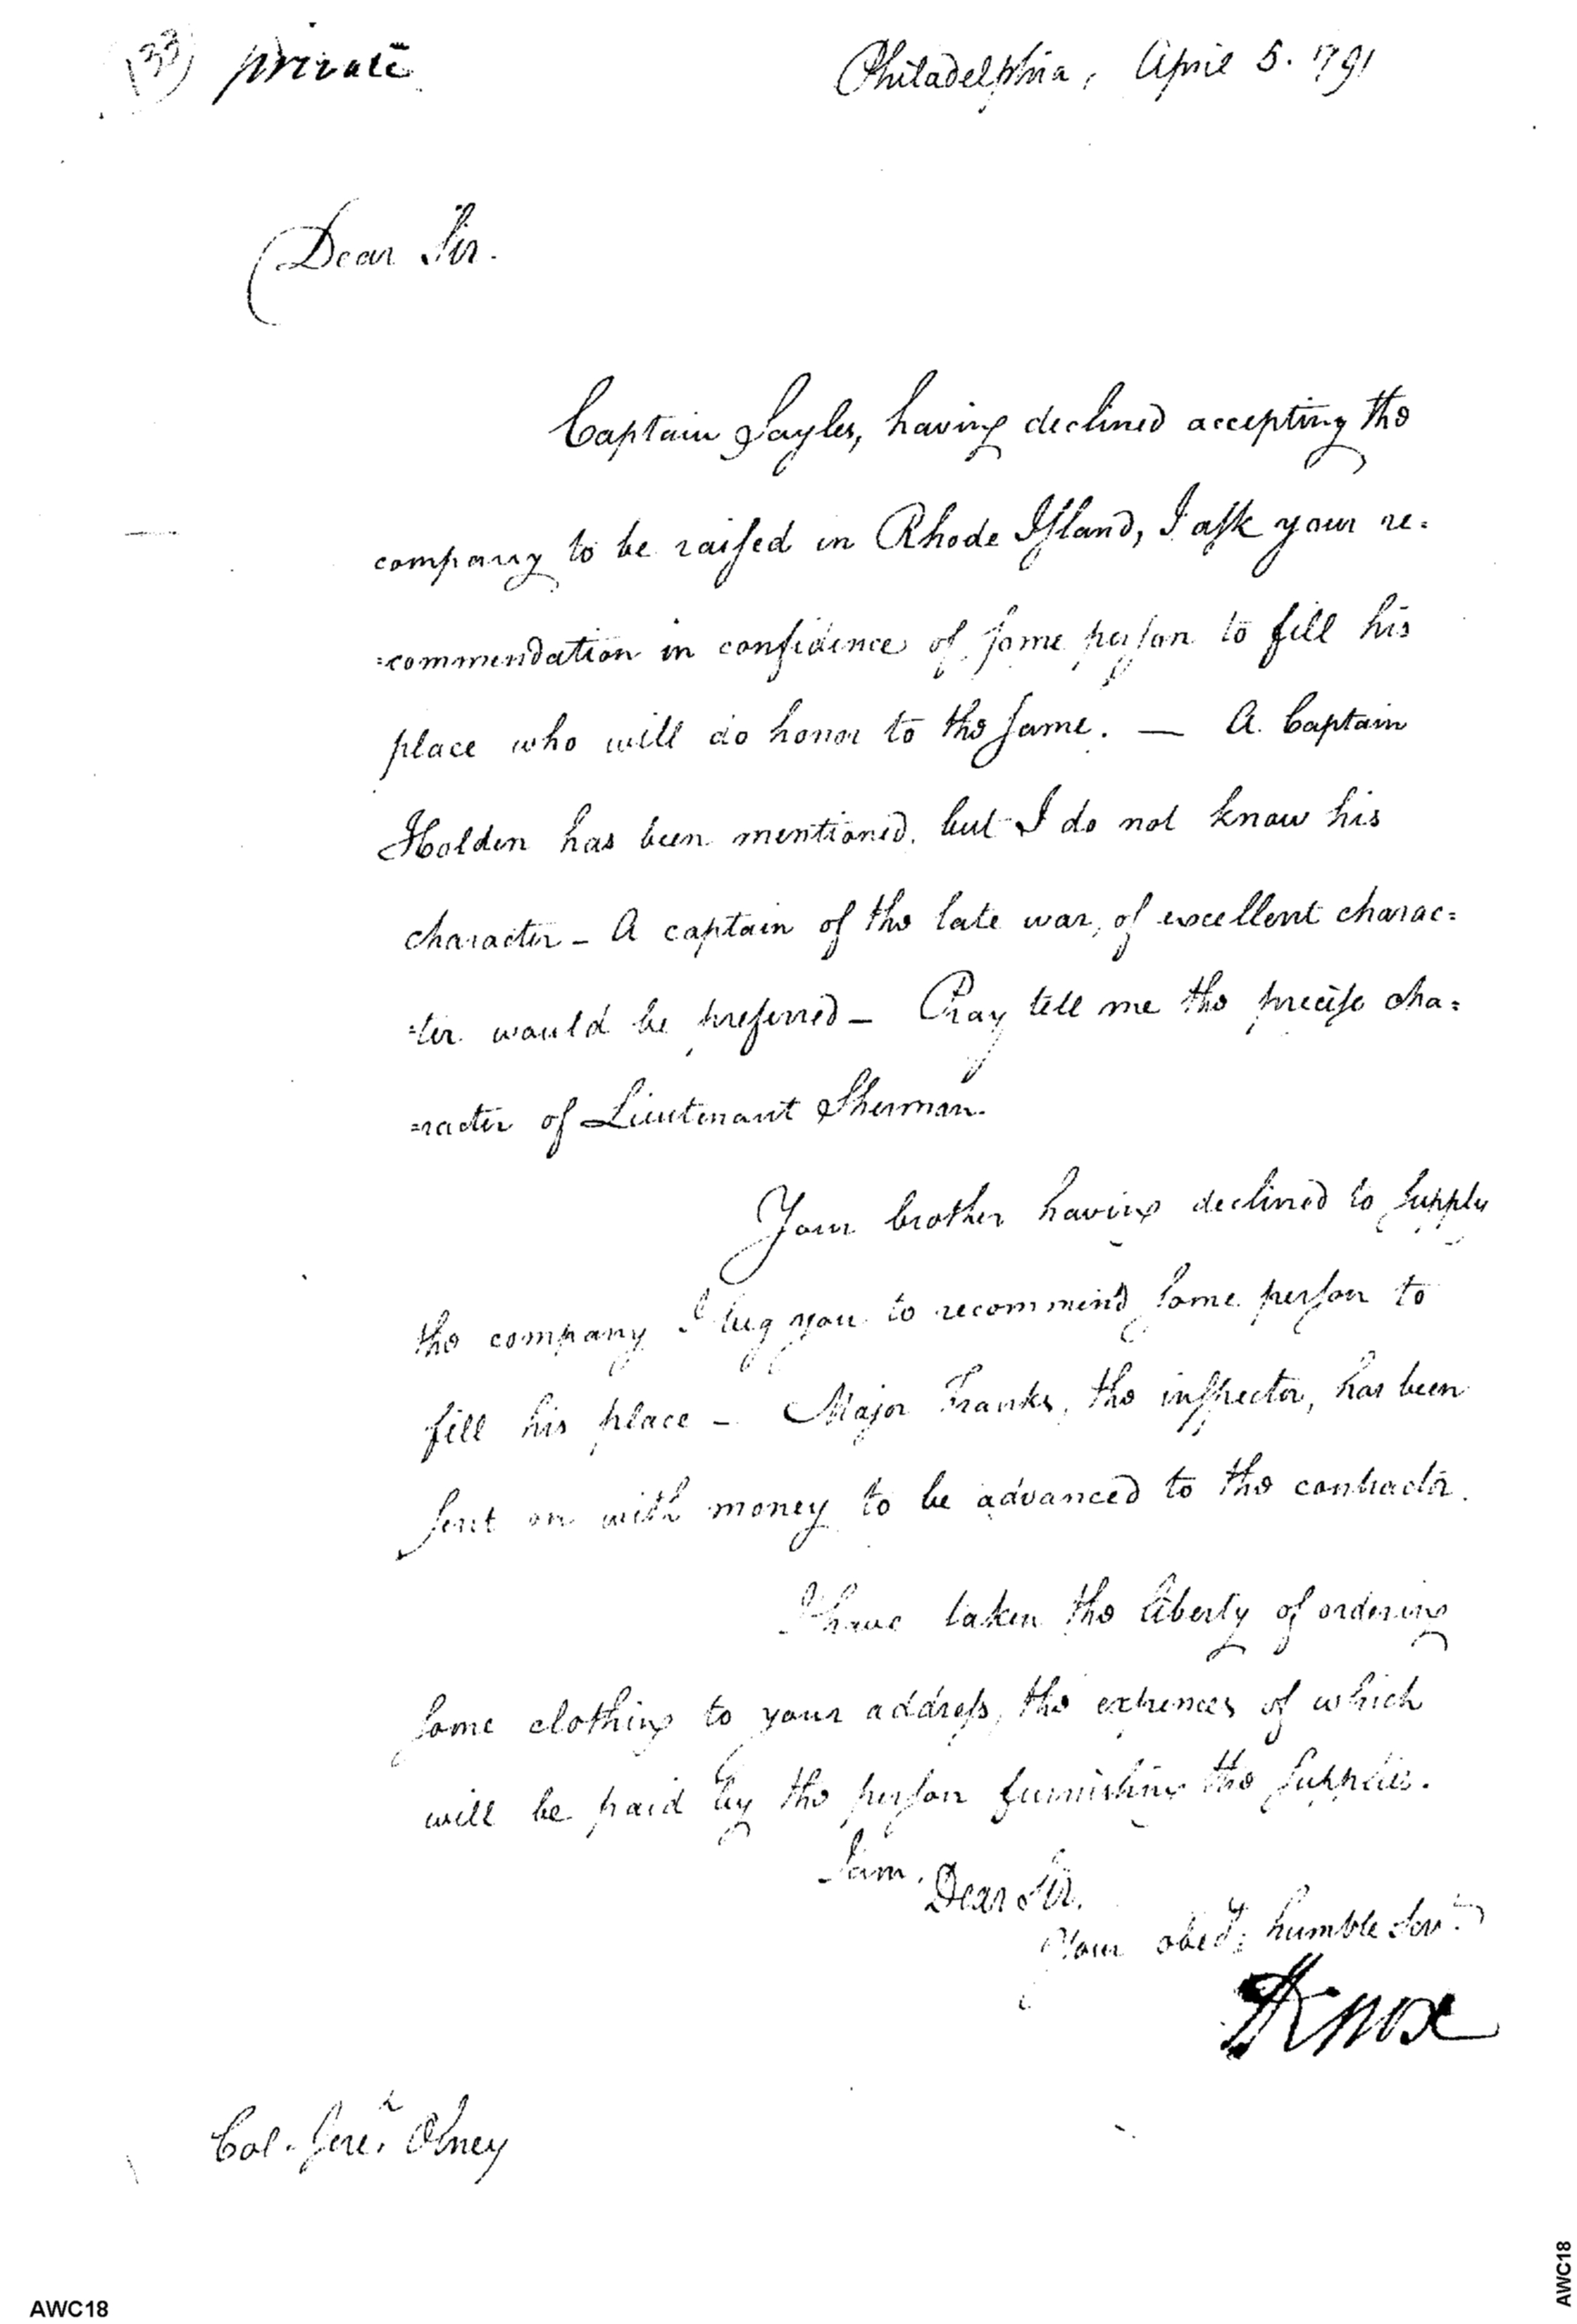 (33) private
Philadelphia, April 5. 1791
Dear Sir.
Captain Sayles, having declined accepting the
company to be raised in Rhode Island, I ask your re=
=commendation in confidence of some person to fill his
place who will do honor to the same. — A Captain
Holden has been mentioned, but I do not know his
character – A captain of the late war, of excellent charac=
=ter would be preferred – Pray tell me the precise cha=
=racter of Lieutenant Sherman.
Your brother having declined to supply
the company I beg you to recommend some person to
fill his place – Major Franks, the inspector, has been
sent on with money to be advanced to the contractor.
I have taken the liberty of ordering
some clothing to your address, the expences of which
will be paid by the person furnishing the supplies.
I am, Dear Sir.
Your obedt. humble Servt.
HKnox
Col. Jereh. Olney
AWC18
AWC18